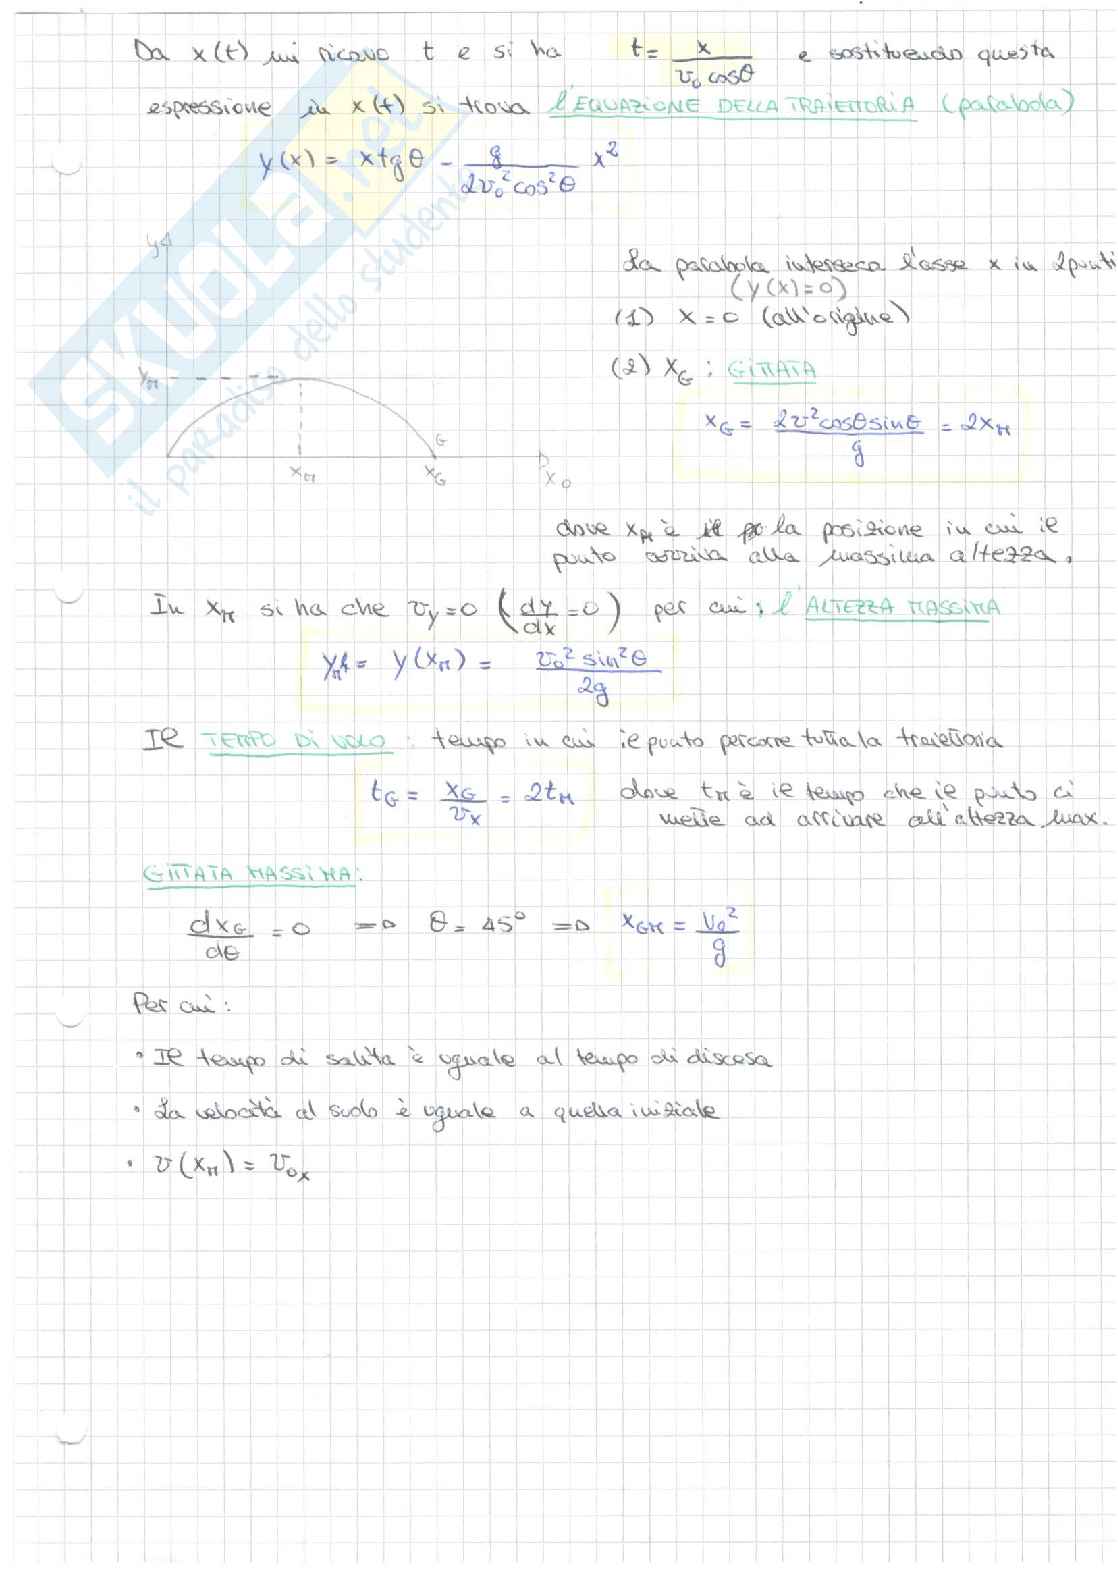 Da x(t) mi ricavo t e si ha t = x / (v₀ cosθ) e sostituendo questa
espressione in x(t) si trova l'EQUAZIONE DELLA TRAIETTORIA (parabola)
y(x) = x tgθ - g / (2v₀² cos²θ) x²
y
La parabola interseca l'asse x in 2 punti
(y(x)=0)
(1) x = 0 (all'origine)
(2) x_G : GITTATA
y_M
x_G = 2v² cosθ sinθ / g = 2x_M
G
x_M x_G x
dove x_M è la posizione in cui il
punto arriva alla massima altezza.
In x_M si ha che v_y = 0 (dy/dx = 0) per cui: l'ALTEZZA MASSIMA
y_M = y(x_M) = v₀² sin²θ / 2g
Il TEMPO DI VOLO: tempo in cui il punto percorre tutta la traiettoria
t_G = x_G / v_x = 2t_M dove t_M è il tempo che il punto ci
mette ad arrivare all'altezza max.
GITTATA MASSIMA:
dx_G / dθ = 0 ⇒ θ = 45° ⇒ x_GM = v₀² / g
Per cui:
• Il tempo di salita è uguale al tempo di discesa
• La velocità al suolo è uguale a quella iniziale
• v(x_M) = v₀ₓ
SKUOLA.net
il paradiso dello studente